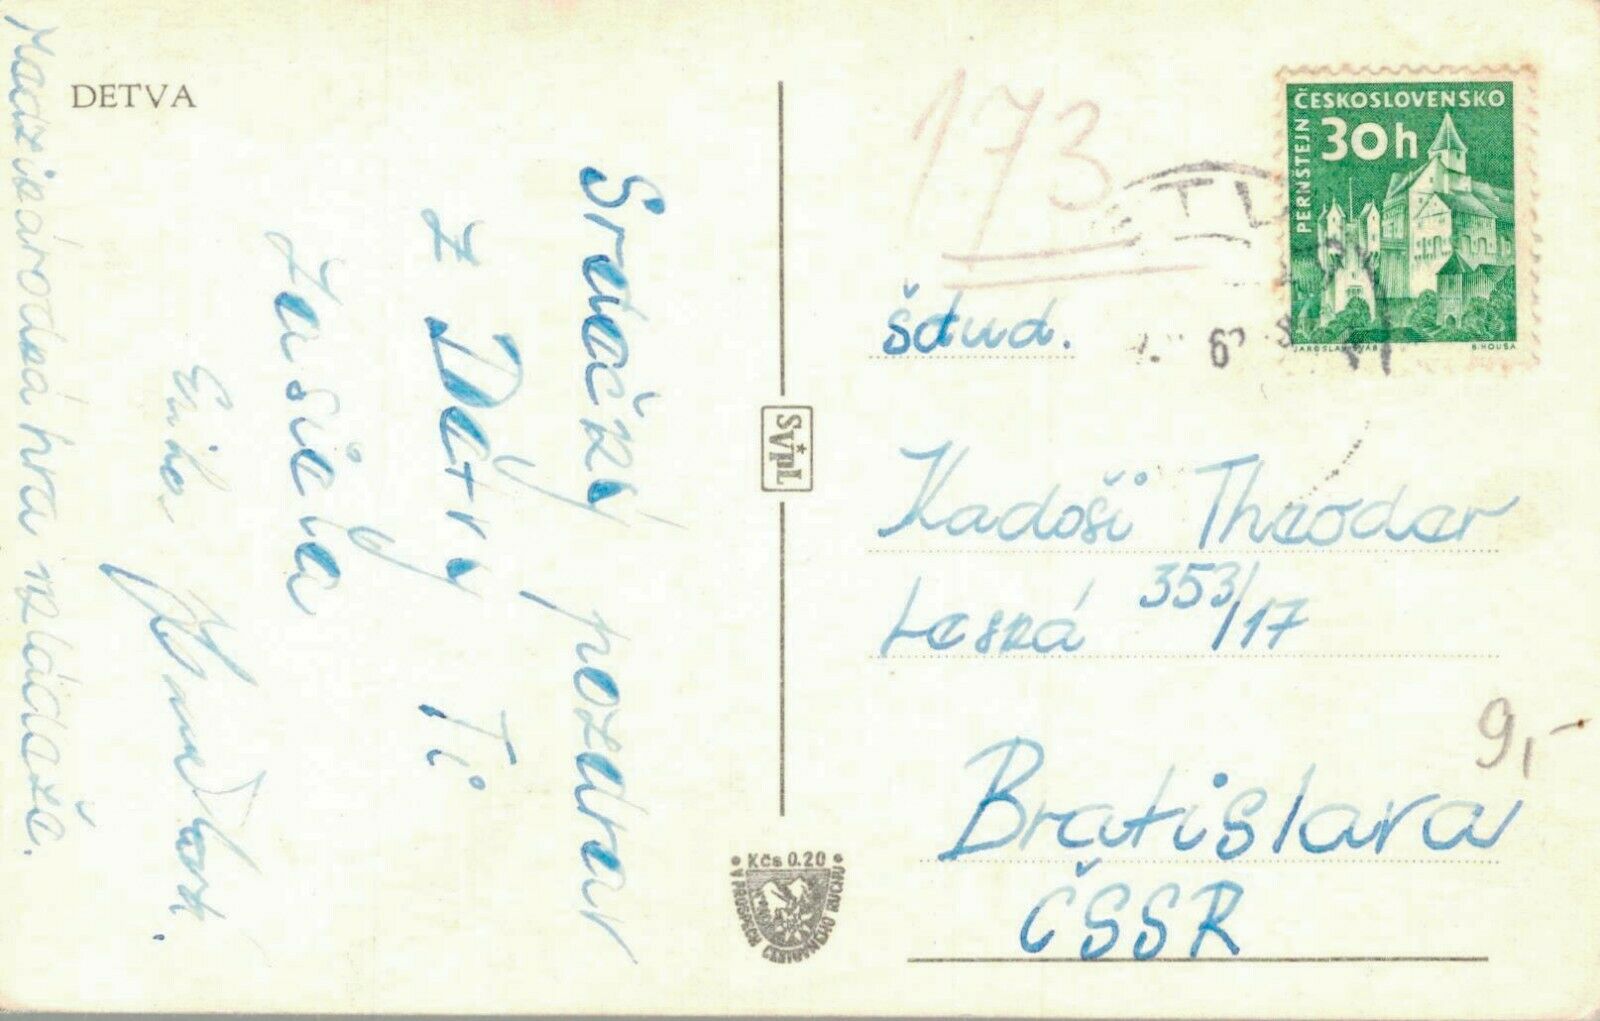 DETVA
Srdečný pozdrav
z Detvy Ti
zasiela
Medzinárodná hra mládeže.
173
ČESKOSLOVENSKO
PERNŠTEJN
30h
JAROSLAV ŠVÁB
B. HOUSA
šdud.
Kadoši Theodor
Lesná 353/17
Bratislava
ČSSR
9,-
SVPL
Kčs 0.20
V PROSPECH CESTOVNÉHO RUCHU